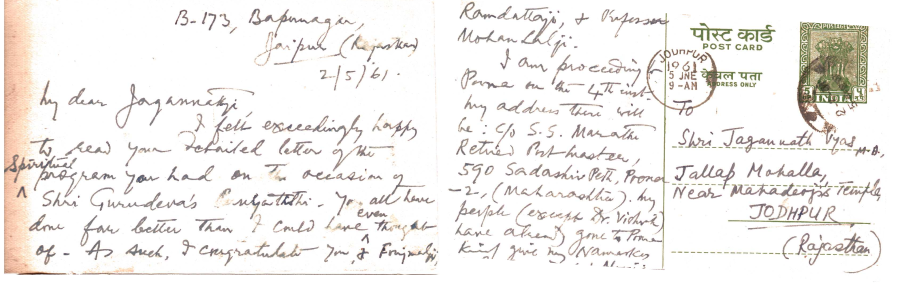 B-173, Bapunagar,
Jaipur (Rajasthan)
2/5/61.
My dear Jagannathji,
I felt exceedingly happy
to read your detailed letter of the
Spiritual
program you had on the occasion of
Shri Gurudeva's Punyatithi. You all have
even
done far better than I could have thought
of - As such, I congratulate you, & Foujmalji,
Ramdattaji, & Professor
Mohan Lalji.
I am proceeding
Poona on the 4th inst-
my address there will
be: C/o S. S. Marathe
Retired Post master,
590 Sadashiv Peth, Poona
-2, (Maharashtra). My
people (except Dr. ) 
have already gone to Poona
Kindly give my Namaskar
पोस्ट कार्ड
POST CARD
केवल पता
ADDRESS ONLY
JODHPUR
1961
5 JNE
9-AM
INDIA
To
Shri Jagannath Vyas, M.A.,
Jallap Mohalla,
Near Mahadevji's Temple,
JODHPUR
(Rajasthan)